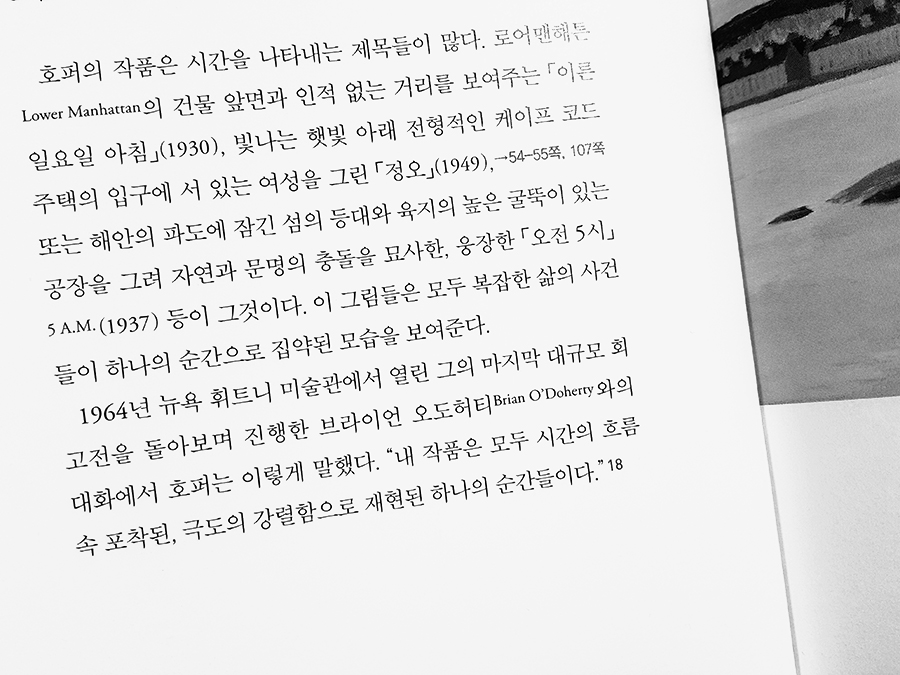 호퍼의 작품은 시간을 나타내는 제목들이 많다. 로어맨해튼
Lower Manhattan의 건물 앞면과 인적 없는 거리를 보여주는 「이른
일요일 아침」(1930), 빛나는 햇빛 아래 전형적인 케이프 코드
주택의 입구에 서 있는 여성을 그린 「정오」(1949),→54–55쪽, 107쪽
또는 해안의 파도에 잠긴 섬의 등대와 육지의 높은 굴뚝이 있는
공장을 그려 자연과 문명의 충돌을 묘사한, 웅장한 「오전 5시」
5 A.M.(1937) 등이 그것이다. 이 그림들은 모두 복잡한 삶의 사건
들이 하나의 순간으로 집약된 모습을 보여준다.
1964년 뉴욕 휘트니 미술관에서 열린 그의 마지막 대규모 회
고전을 돌아보며 진행한 브라이언 오도허티Brian O’Doherty와의
대화에서 호퍼는 이렇게 말했다. “내 작품은 모두 시간의 흐름
속 포착된, 극도의 강렬함으로 재현된 하나의 순간들이다.”18